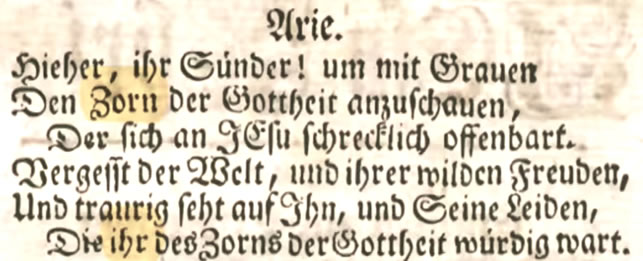 Arie.
Hieher, ihr Sünder! um mit Grauen
Den Zorn der Gottheit anzuschauen,
Der sich an JEsu schrecklich offenbart.
Vergeßt der Welt, und ihrer wilden Freuden,
Und traurig seht auf Jhn, und Seine Leiden,
Die ihr des Zorns der Gottheit würdig wart.